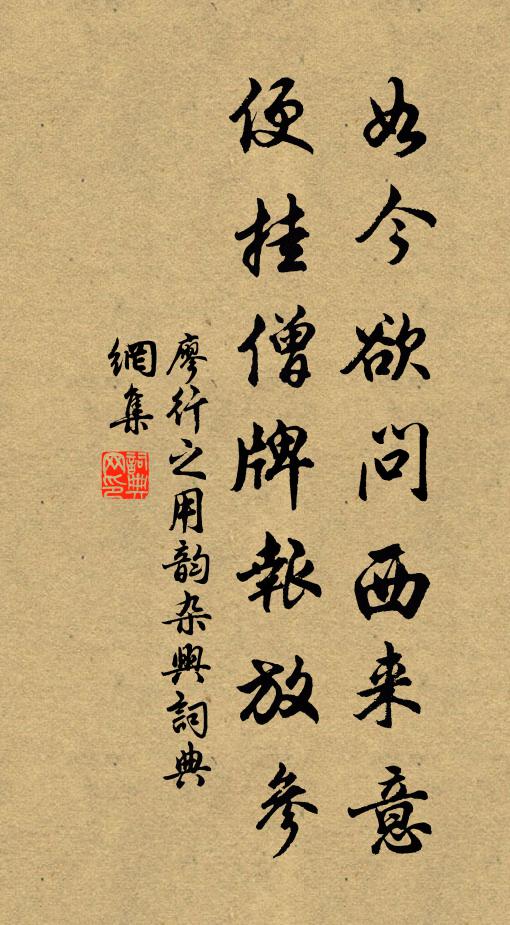 如今欲问西来意
便挂僧牌報放參
廖行之用韵杂興詞典
網集
詞典网印